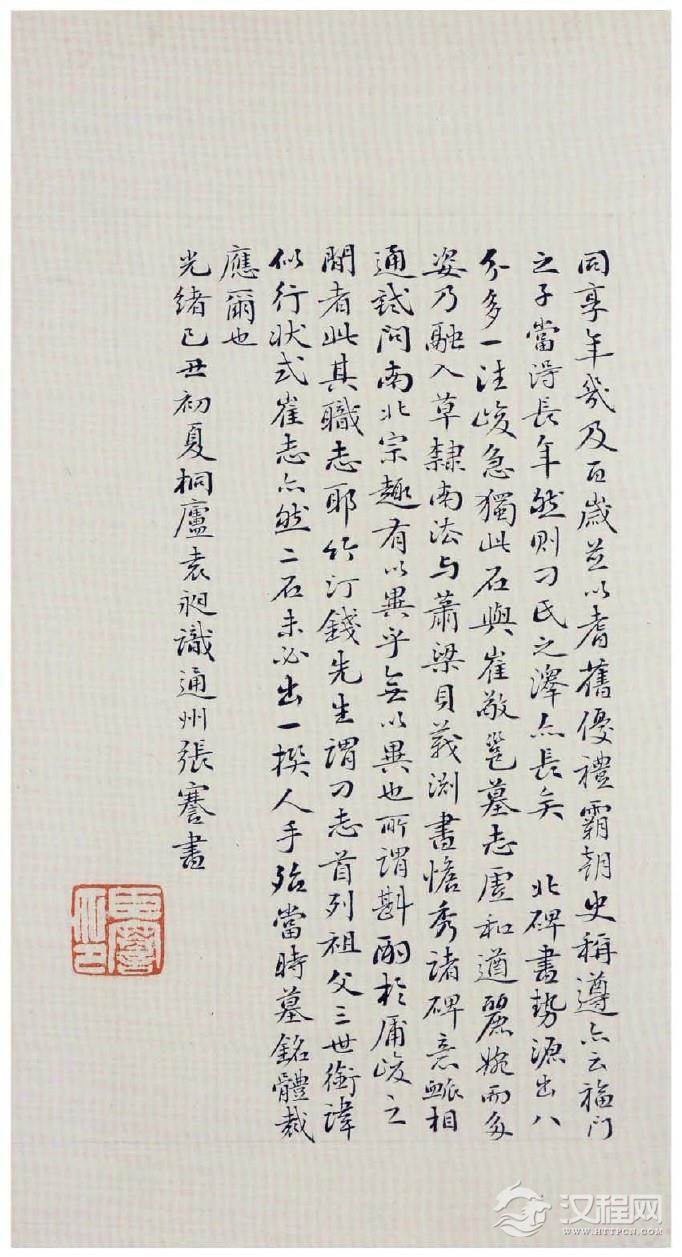 同享年幾及百歲並以耆舊優禮霸朝史稱遵亦云福門
之子當得長年然則刁氏之澤亦長矣 北碑書勢源出八
分多一注峻急獨此石與崔敬邕墓志虛和遒麗婉而多
姿乃融入草隸南法与蕭梁貝義淵書憺秀諸碑意脈相
通試問南北宗趣有以異乎無以異也所謂斟酌於庸峻之
間者此其職志耶竹汀錢先生謂刁志首列祖父三世銜諱
似行狀式崔志亦然二石未必出一撰人手殆當時墓銘體裁
應爾也
光緒己丑初夏桐廬袁昶識通州張謇書
汉程网
WWW.HTTPCN.COM